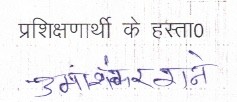 प्रशिक्षणार्थी के हस्ता0
उमाशंकर राने